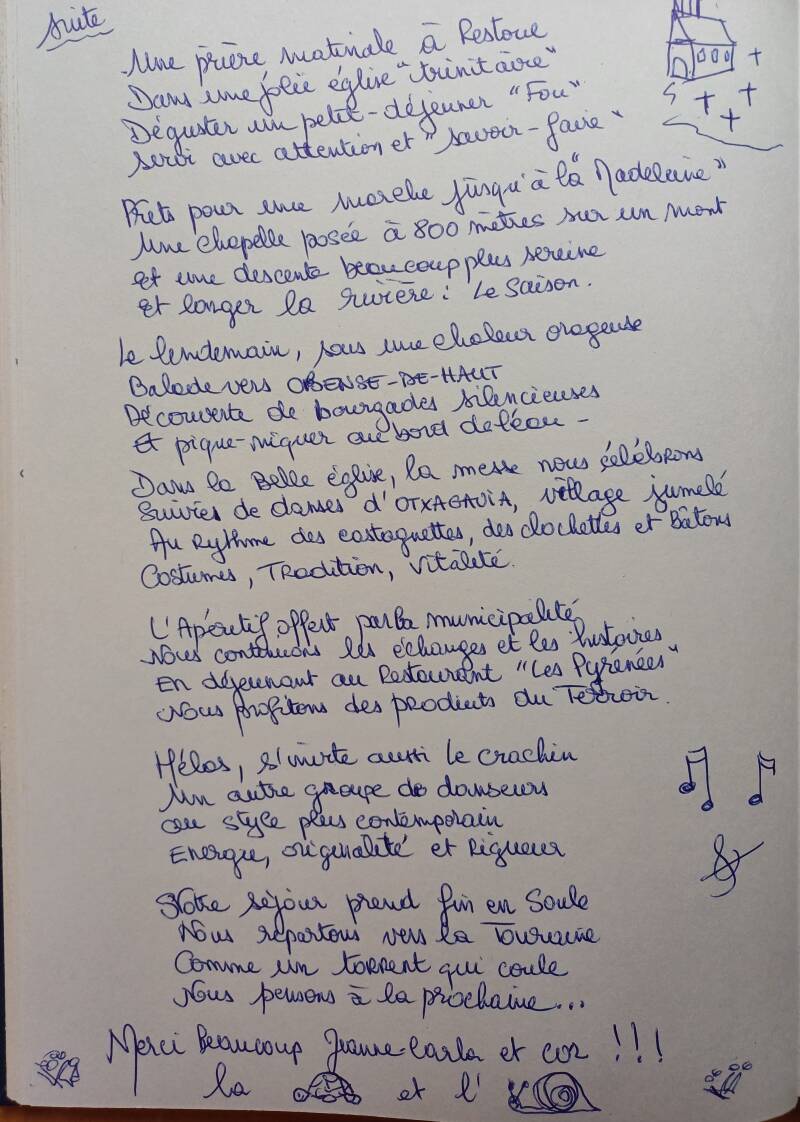 suite
Une prière matinale à Restoue
Dans une jolie église "trinitaire"
Déguster un petit-déjeuner "Fou"
servi avec attention et "savoir-faire"
Prêts pour une marche jusqu'à la "Madeleine"
Une chapelle posée à 800 mètres sur un mont
Et une descente beaucoup plus sereine
Et longer la rivière : Le Saison.
Le lendemain, sous une chaleur orageuse
Balade vers OSSENSE-DE-HAUT
Découverte de bourgades silencieuses
Et pique-niquer au bord de l'eau -
Dans la Belle église, la messe nous célébrons
Suivies de danses d'OTXAGAVIA, village jumelé
Au Rythme des castagnettes, des clochettes et Bâtons
Costumes, Tradition, Vitalité.
L'Apéritif offert par la municipalité
Nous continuons les échanges et les histoires
En déjeunant au Restaurant "Les Pyrénées"
Nous profitons des produits du Terroir.
Hélas, s'invite aussi le crachin
Un autre groupe de danseurs
au style plus contemporain
Energie, originalité et Rigueur
Notre séjour prend fin en Soule
Nous repartons vers la Touraine
Comme un torrent qui coule
Nous pensons à la prochaine...
Merci Beaucoup Jeanne-Carla et !!!
la et l'